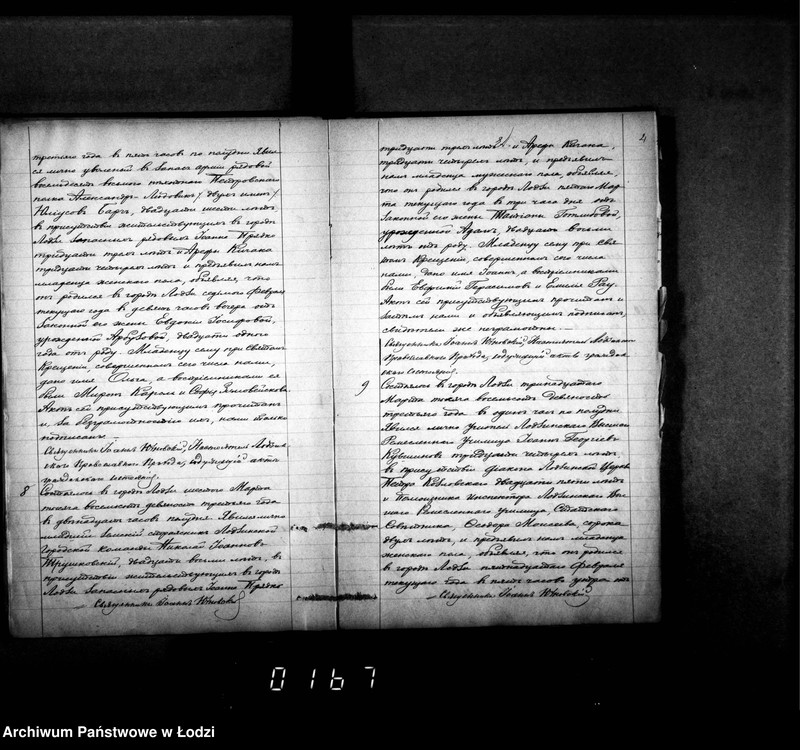 третьяго года въ пять часовъ по полудни. Явил-
ся лично уволенный въ запасъ арміи рядовой
восьмидесятъ восьмого пѣхотнаго Петровскаго
полка Александръ-Людовикъ /двухъ именъ/
Юліусовъ Барчъ, двадцати шести лѣтъ,
въ присутствіи жительствующихъ въ городѣ
Лодзи запасныхъ рядовыхъ Іоанна Прядко
тридцати трехъ лѣтъ и Арефы Кигана
тридцати четырехъ лѣтъ и предъявилъ намъ
младенца женскаго пола, объявляя, что
онъ родился въ городѣ Лодзи седьмого Февраля
текущаго года въ девять часовъ вечера отъ
законной его жены Евдокіи Іосифовой,
урожденной двадцати одного
года отъ роду. Младенцу сему при Святомъ
Крещеніи, совершенномъ сего числа нами,
дано имя Ольга, а воспріемниками его
были Миронъ и Софія
Актъ сей присутствующимъ прочитанъ
и за безграмотностію ихъ, нами только
подписанъ
Священникъ Іоаннъ Настоятель Лодзин-
скаго Православнаго Прихода, содержащій акты
гражданскаго состоянія.
8 Состоялось въ городѣ Лодзи шестого Марта
тысяча восемьсотъ девяносто третьяго года
въ двѣнадцать часовъ полудня. Явился лично
младшій запасный стражникъ Лодзинской
Городской команды Николай Іоанновъ
Трушковскій, двадцати восьми лѣтъ, въ
присутствіи жительствующихъ въ городѣ
Лодзи запасныхъ рядовыхъ Іоанна Прядко
Священникъ Іоаннъ
4
тридцати трехъ лѣтъ и Арефы Кигана,
тридцати четырехъ лѣтъ, и предъявилъ
намъ младенца мужескаго пола, объявляя,
что онъ родился въ городѣ Лодзи пятого Мар-
та текущаго года въ три часа дня отъ
законной его жены Татіаны Готлибовой,
урожденной Адамъ, двадцати восьми
лѣтъ отъ роду. Младенцу сему при Свя-
томъ Крещеніи, совершенномъ сего числа
нами, дано имя Іоаннъ, а воспріемниками
были Евфимій Герасимовъ и Емилія Рау.
Актъ сей присутствующимъ прочитанъ и
засимъ нами и объявляющимъ подписанъ,
свидѣтели же неграмотны.
Священникъ Іоаннъ Настоятель Лодзинскаго
Православнаго Прихода, содержащій акты граждан-
скаго состоянія.
9 Состоялось въ городѣ Лодзи тринадцатаго
Марта тысяча восемьсотъ девяносто
третьяго года въ одинъ часъ по полудни.
Явился лично учитель Лодзинскаго Высшаго
Ремесленнаго Училища Іоаннъ Георгіевъ
Кувшиновъ тридцати четырехъ лѣтъ,
въ присутствіи діакона Лодзинской Церкви
Петра Козловскаго двадцати пяти лѣтъ
и Помощника Инспектора Лодзинскаго Выс-
шаго Ремесленнаго Училища, Статскаго
Совѣтника, Ѳеодора Моисеева, сорока
двухъ лѣтъ, и предъявилъ намъ младенца
женскаго пола, объявляя, что онъ родился
въ городѣ Лодзи пятнадцатаго Февраля
текущаго года въ пять часовъ утра отъ
Священникъ Іоаннъ
0167
Archiwum Państwowe w Łodzi